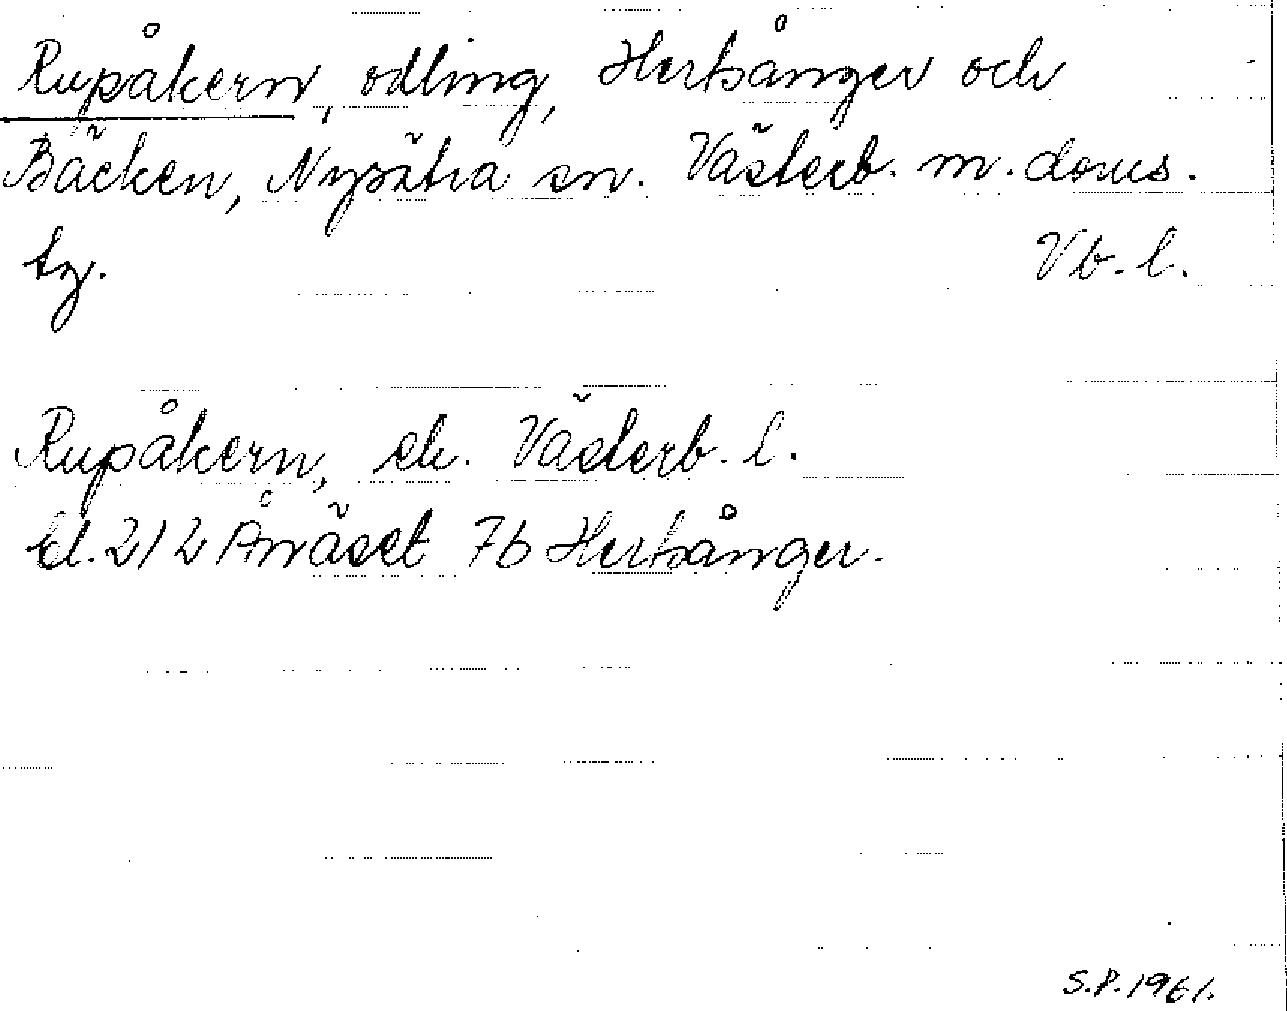 Rupåkern, odling, Hertsånger och
Bäcken, Nysätra sn. Västerb. m. doms.
tg. Vb. l.
Rupåkern, ek. Västerb. l.
bl. 212 Ånäset 7b Hertsånger.
S.P. 1961.